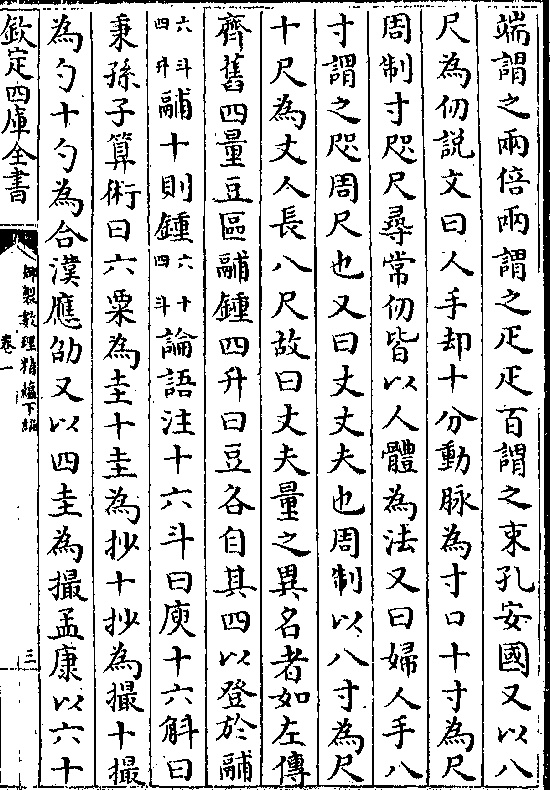 端謂之兩倍兩謂之疋疋百謂之束孔安國又以八
尺為仞説文曰人手却十分動脉為寸口十寸為尺
周制寸咫尺尋常仞皆以人體為法又曰婦人手八
寸謂之咫周尺也又曰丈丈夫也周制以八寸為尺
十尺為丈人長八尺故曰丈夫量之異名者如左傳
齊舊四量豆區鬴鍾四升曰豆各自其四以登於鬴
六斗四升鬴十則鍾六十四斗論語注十六斗曰庾十六斛曰
秉孫子算術曰六粟為圭十圭為抄十抄為撮十撮
為勺十勺為合漢應劭又以四圭為撮孟康以六十
欽定四庫全書
御製數理精藴下編
卷一
三